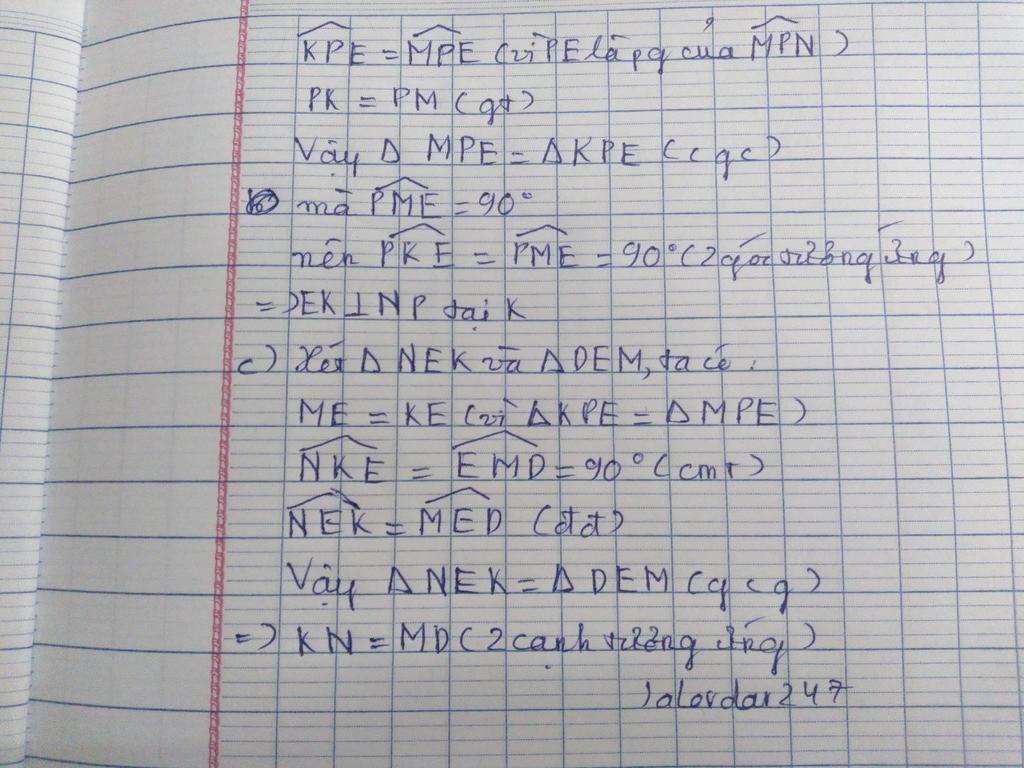 KPE = MPE (vì PE là pg của MPN)
PK = PM (gt)
Vậy Δ MPE = Δ KPE (c g c)
mà PME = 90°
nên PKE = PME = 90° (2 góc tương ứng)
=> EK ⊥ NP tại K
c) Xét Δ NEK và Δ DEM, ta có:
ME = KE (vì Δ KPE = Δ MPE)
NKE = EMD = 90° (cmt)
NEK = MED (đđ)
Vậy Δ NEK = Δ DEM (g c g)
=> KN = MD (2 cạnh tương ứng)